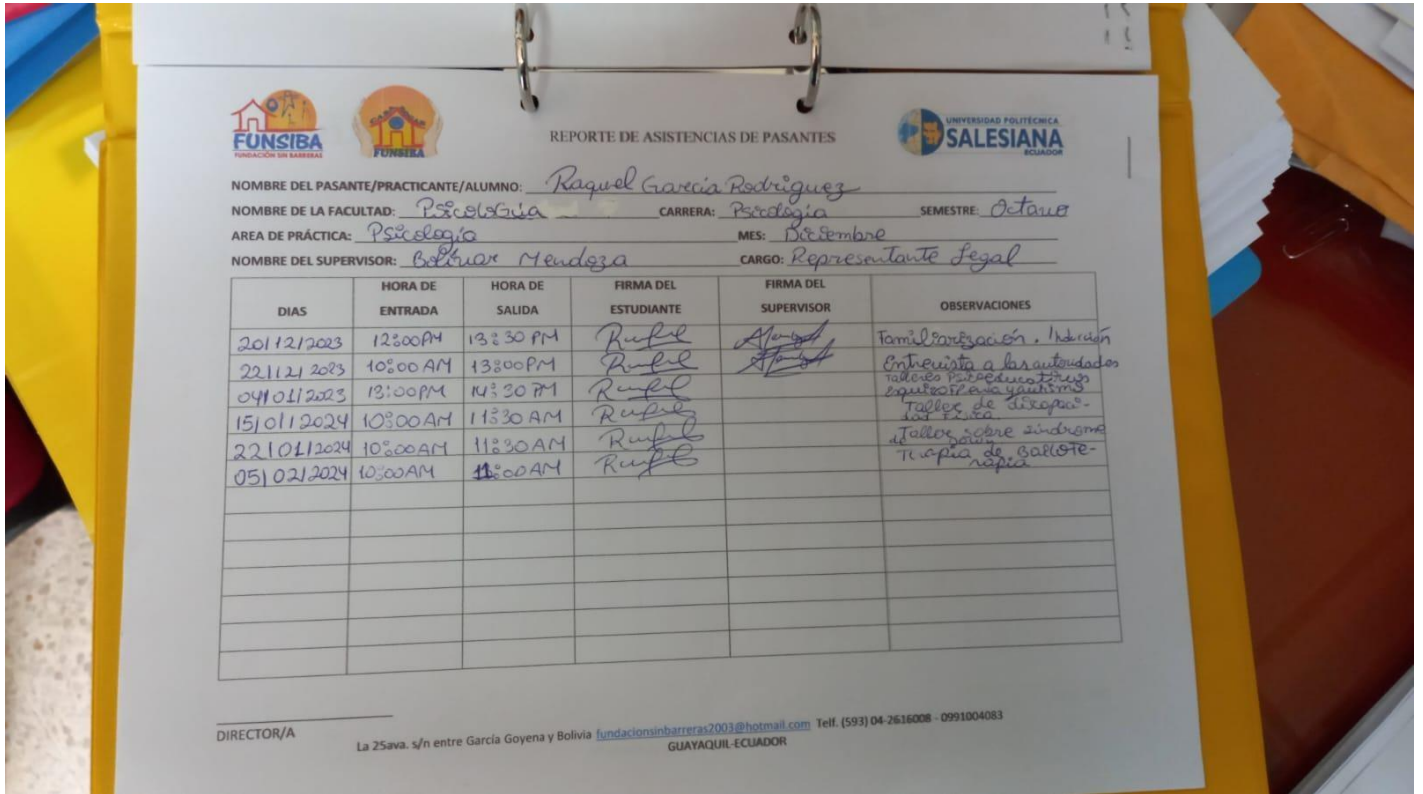 FUNSIBA
FUNDACIÓN SIN BARRERAS
FUNSIBA
REPORTE DE ASISTENCIAS DE PASANTES
UNIVERSIDAD POLITÉCNICA
SALESIANA
ECUADOR
NOMBRE DEL PASANTE/PRACTICANTE/ALUMNO: Raquel García Rodríguez
NOMBRE DE LA FACULTAD: PsicoloGía CARRERA: Psicología SEMESTRE: Octavo
AREA DE PRÁCTICA: Psicología MES: Diciembre
NOMBRE DEL SUPERVISOR: Bolívar Mendoza CARGO: Representante Legal
DIAS HORA DE ENTRADA HORA DE SALIDA FIRMA DEL ESTUDIANTE FIRMA DEL SUPERVISOR OBSERVACIONES
20/12/2023 12:00PM 13:30 PM Familiarización. Inducción
22/12/2023 10:00 AM 13:00PM Entrevista a las autoridades
04/01/2023 13:00PM 14:30 PM Talleres Psicoeducativos
15/01/2024 10:00AM 11:30 AM Taller de discapaci-
22/01/2024 10:00AM 11:30AM Taller sobre síndrome de Down
05/02/2024 10:00AM 11:00AM Terapia de
DIRECTOR/A
La 25ava. s/n entre García Goyena y Bolivia fundacionsinbarreras2003@hotmail.com Telf. (593) 04-2616008 - 0991004083
GUAYAQUIL-ECUADOR